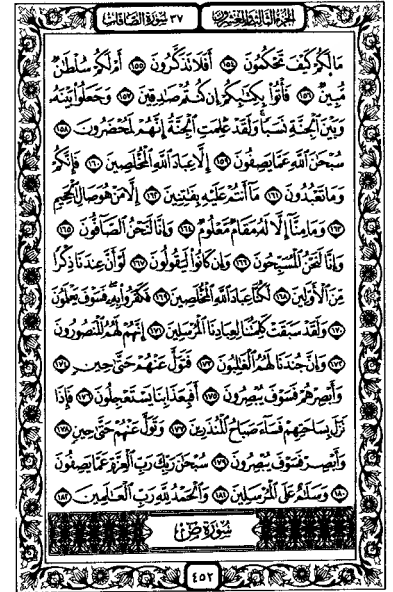 الجزء الثالث والعشرون
٣٧ سورة الصافات
مَا لَكُمْ كَيْفَ تَحْكُمُونَ ١٥٤ أَفَلَا تَذَكَّرُونَ ١٥٥ أَمْ لَكُمْ سُلْطَٰنٌ
مُّبِينٌ ١٥٦ فَأْتُوا۟ بِكِتَٰبِكُمْ إِن كُنتُمْ صَٰدِقِينَ ١٥٧ وَجَعَلُوا۟ بَيْنَهُۥ
وَبَيْنَ ٱلْجِنَّةِ نَسَبًا ۚ وَلَقَدْ عَلِمَتِ ٱلْجِنَّةُ إِنَّهُمْ لَمُحْضَرُونَ ١٥٨
سُبْحَٰنَ ٱللَّهِ عَمَّا يَصِفُونَ ١٥٩ إِلَّا عِبَادَ ٱللَّهِ ٱلْمُخْلَصِينَ ١٦٠ فَإِنَّكُمْ
وَمَا تَعْبُدُونَ ١٦١ مَآ أَنتُمْ عَلَيْهِ بِفَٰتِنِينَ ١٦٢ إِلَّا مَنْ هُوَ صَالِ ٱلْجَحِيمِ
١٦٣ وَمَا مِنَّآ إِلَّا لَهُۥ مَقَامٌ مَّعْلُومٌ ١٦٤ وَإِنَّا لَنَحْنُ ٱلصَّآفُّونَ ١٦٥
وَإِنَّا لَنَحْنُ ٱلْمُسَبِّحُونَ ١٦٦ وَإِن كَانُوا۟ لَيَقُولُونَ ١٦٧ لَوْ أَنَّ عِندَنَا ذِكْرًا
مِّنَ ٱلْأَوَّلِينَ ١٦٨ لَكُنَّا عِبَادَ ٱللَّهِ ٱلْمُخْلَصِينَ ١٦٩ فَكَفَرُوا۟ بِهِۦ ۖ فَسَوْفَ يَعْلَمُونَ
١٧٠ وَلَقَدْ سَبَقَتْ كَلِمَتُنَا لِعِبَادِنَا ٱلْمُرْسَلِينَ ١٧١ إِنَّهُمْ لَهُمُ ٱلْمَنصُورُونَ
١٧٢ وَإِنَّ جُندَنَا لَهُمُ ٱلْغَٰلِبُونَ ١٧٣ فَتَوَلَّ عَنْهُمْ حَتَّىٰ حِينٍ ١٧٤
وَأَبْصِرْهُمْ فَسَوْفَ يُبْصِرُونَ ١٧٥ أَفَبِعَذَابِنَا يَسْتَعْجِلُونَ ١٧٦ فَإِذَا
نَزَلَ بِسَاحَتِهِمْ فَسَآءَ صَبَاحُ ٱلْمُنذَرِينَ ١٧٧ وَتَوَلَّ عَنْهُمْ حَتَّىٰ حِينٍ ١٧٨
وَأَبْصِرْ فَسَوْفَ يُبْصِرُونَ ١٧٩ سُبْحَٰنَ رَبِّكَ رَبِّ ٱلْعِزَّةِ عَمَّا يَصِفُونَ
١٨٠ وَسَلَٰمٌ عَلَى ٱلْمُرْسَلِينَ ١٨١ وَٱلْحَمْدُ لِلَّهِ رَبِّ ٱلْعَٰلَمِينَ ١٨٢
سُورَةُ صٓ
٤٥٢